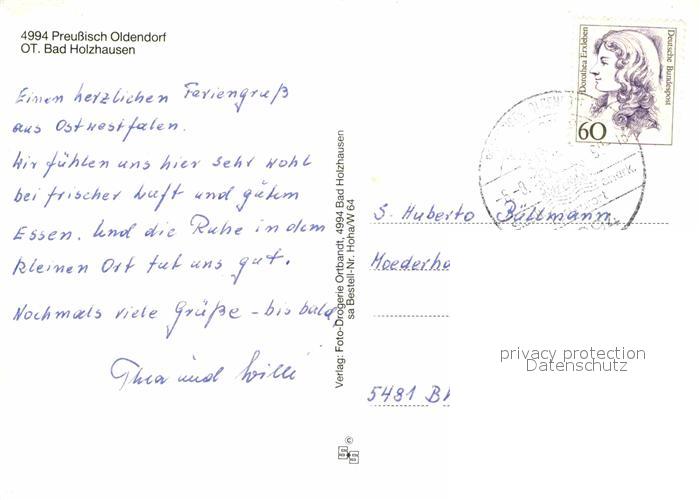 4994 Preußisch Oldendorf
OT. Bad Holzhausen
Einen herzlichen Feriengruß
aus Ostwestfalen.
Wir fühlen uns hier sehr wohl
bei frischer Luft und gutem
Essen. Und die Ruhe in dem
kleinen Ort tut uns gut.
Nochmals viele Grüße - bis bald,
Thea und Willi
Verlag: Foto-Drogerie Ortbandt, 4994 Bad Holzhausen
sa Bestell-Nr. Hoha/W 64
©
Dorothea Erxleben
Deutsche Bundespost
60
S. Huberta Büllmann
Moederha
privacy protection
Datenschutz
5481